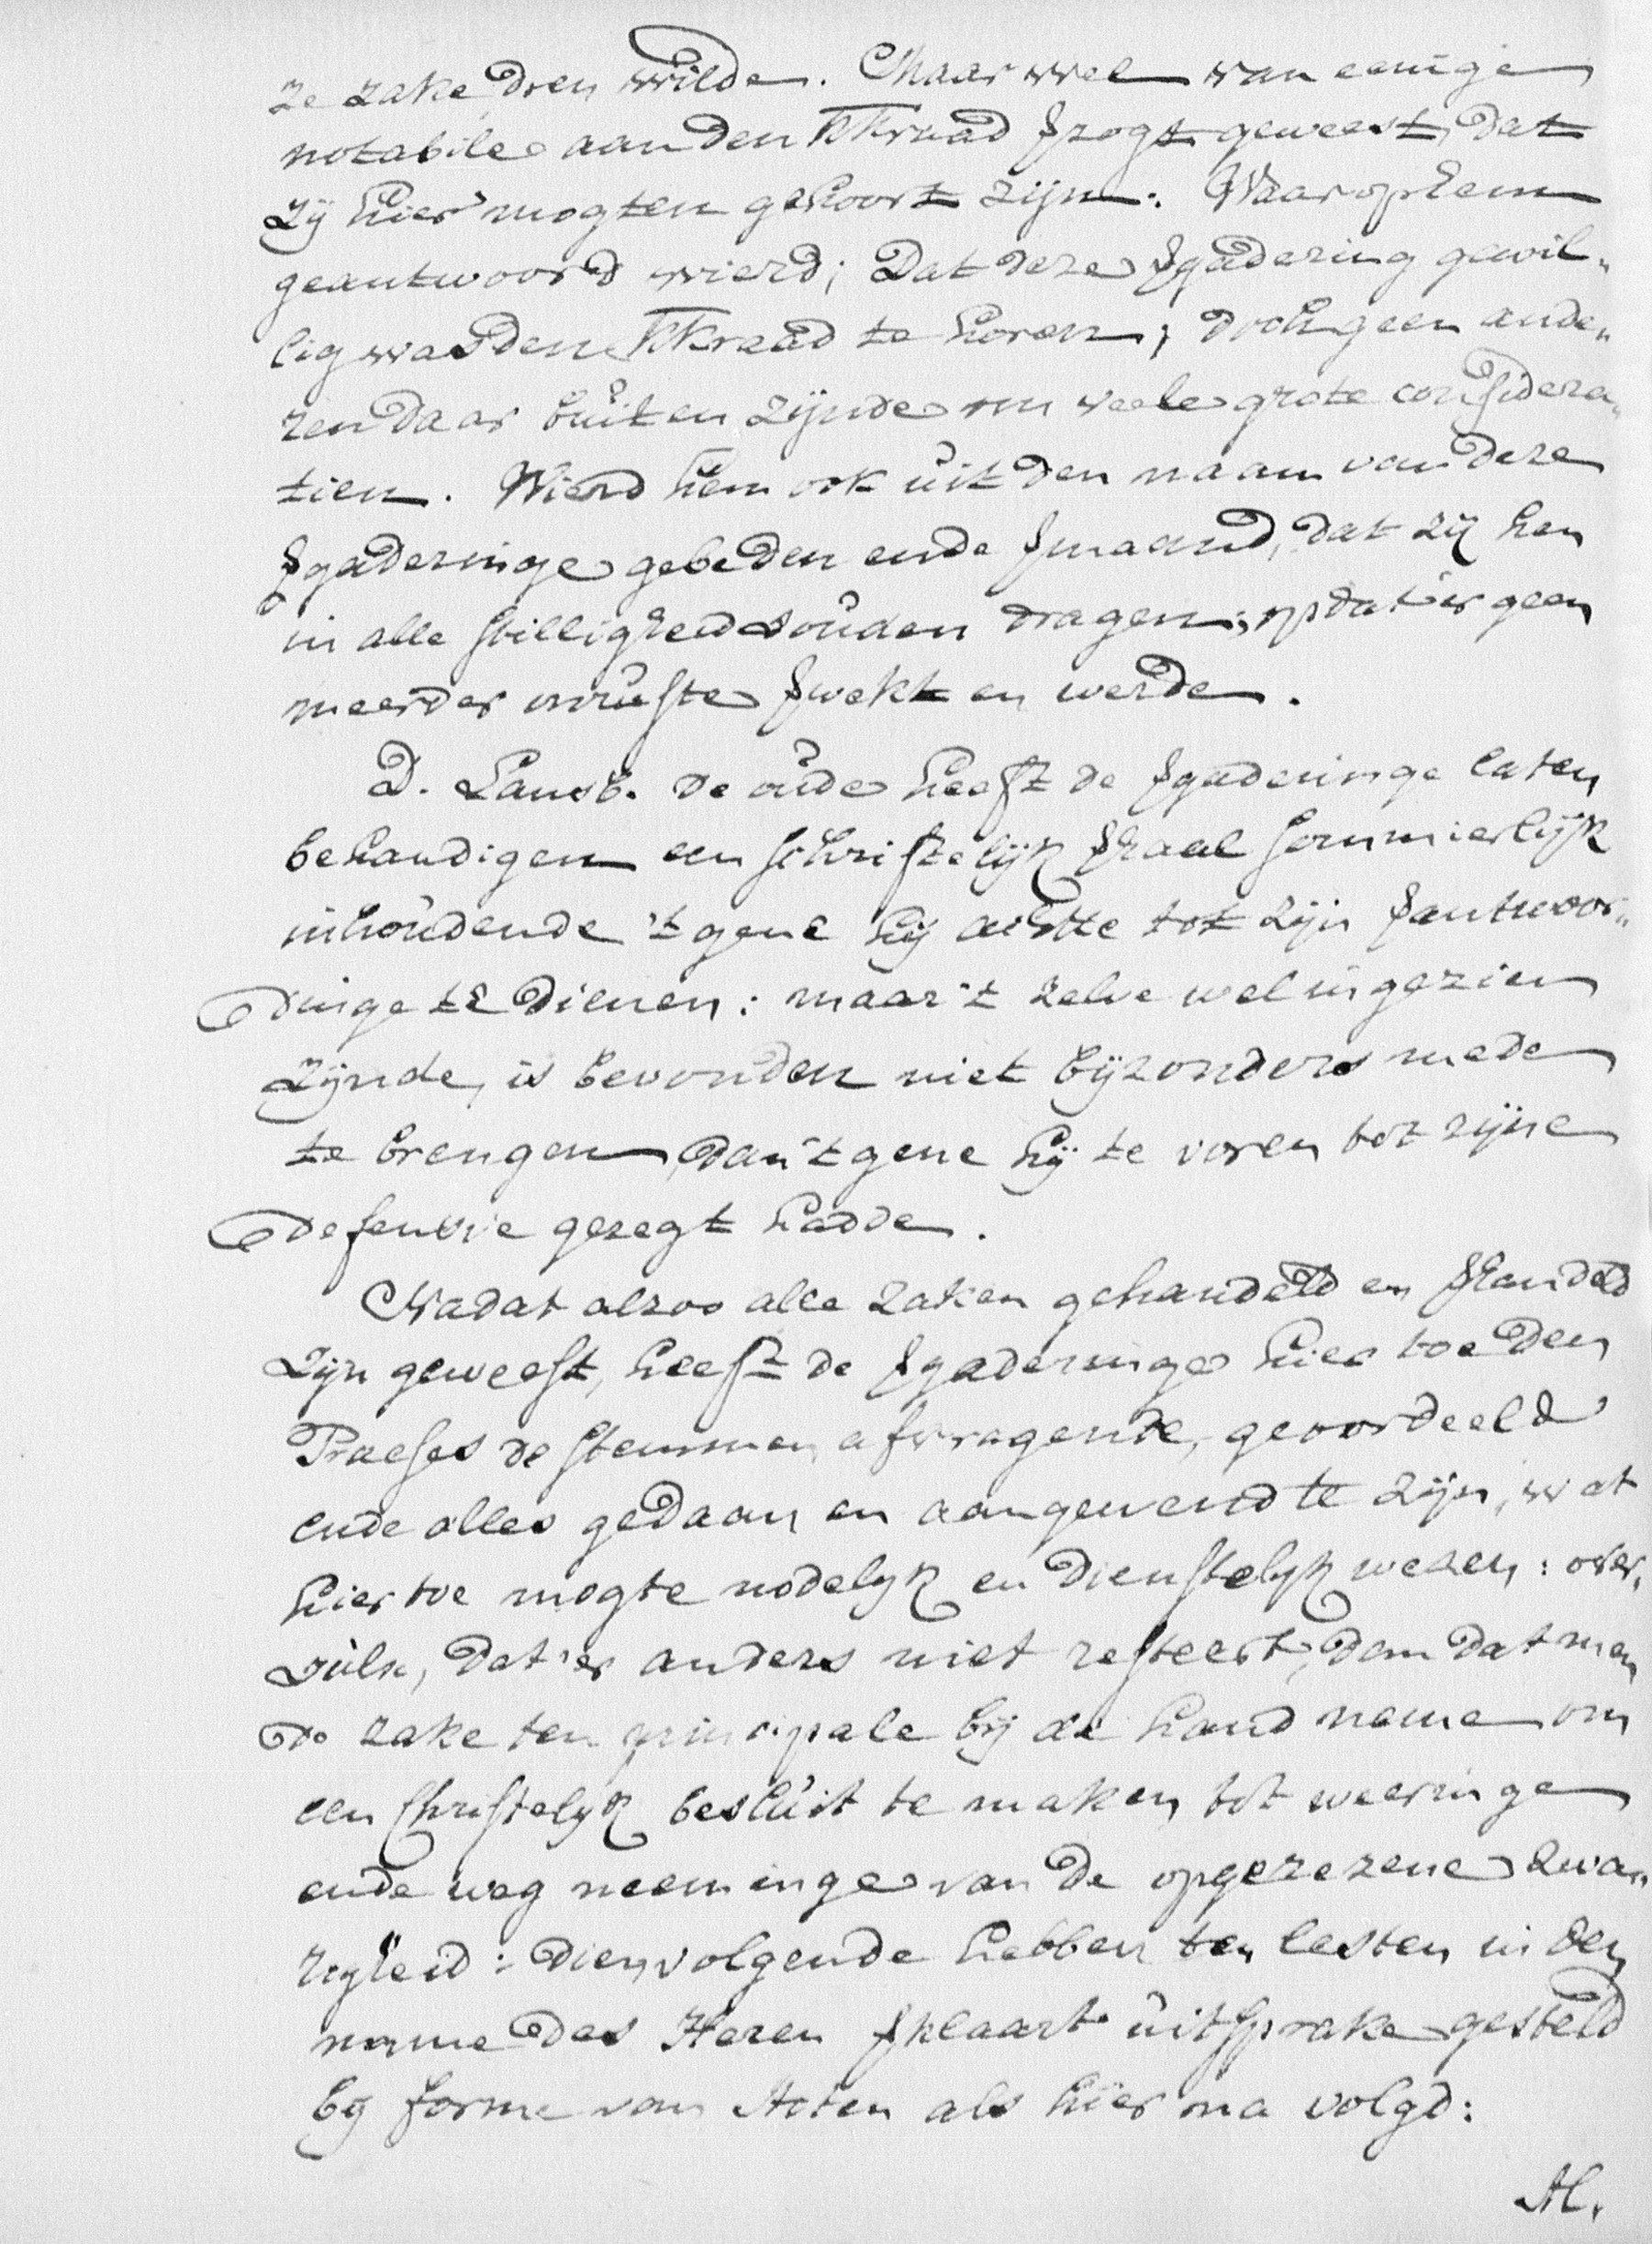 ze zake doen wilde. Maar wel van eenige
notabile aan den kkraad ꝟzogt geweest, dat
zij hier mogten gehoort zijn. Waarop hem
geantwoord wierd; Dat deze ꝟgadering gewil„
lig was den kkraad te horen, doch geen ande„
ren daar buiten zijnde om veele grote considera„
tien. Wierd hem ook uit den naam van deze
ꝟgaderinge gebeden ende ꝟmaand, dat zij hen
in alle stilligheid souden dragen, opdat'er geen
meerder onruste ꝟwekt en werde.
D. Lansb. de oude heeft de ꝟgaderinge laten
behandigen een schriftelijk ꝟhaal sommierlijk
inhoudende 't gene hij achtte tot zijn ꝟantwoor„
dinge te dienen: maar 't zelve wel ingezien
zijnde, is bevonden niet bijzonders mede
te brengen, dan 't gene hij te voren tot zijne
defensie gezegt hadde.
Nadat alzoo alle zaken gehandeld en ꝟhandeld
zijn geweest, heeft de ꝟgaderinge hier toe den
Praeses de stemmen afvragende, geoordeeld
ende alles gedaan en aangewend te zijn, wat
hier toe mogte nodelyk en dienstelyk wesen: over„
sulx, dat'er anders niet resteert, dan dat men
de zake ten principale bij de hand neme om
een Christelyk besluit te maken tot weeringe
ende weg neeminge van de opgerezene zwa„
righeid: dienvolgende hebben ten lesten in den
name des Heren ꝟklaart uitsprake gesteld
bij forme van Acten als hier na volgd: